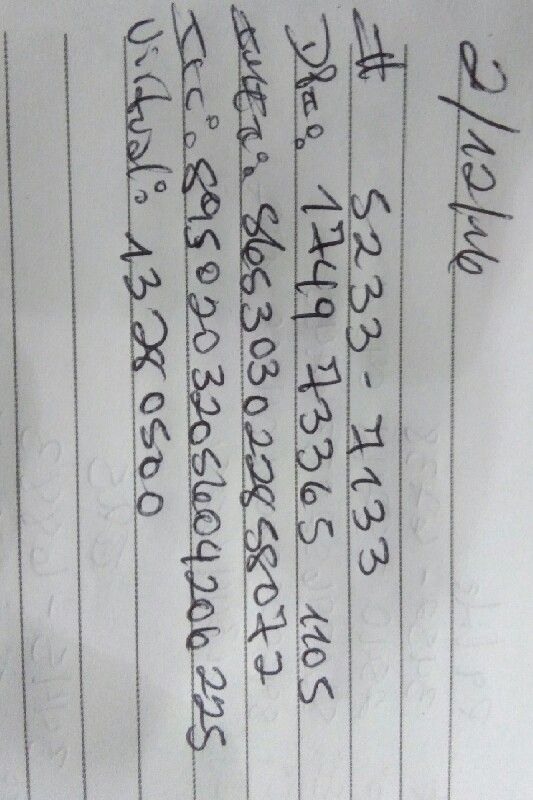 2/12/16
# 5233-7133
Dpi: 1749 73365 1105
IMEI: 865303022858072
Icc: 8950203205604206225
Virtual: 13280500